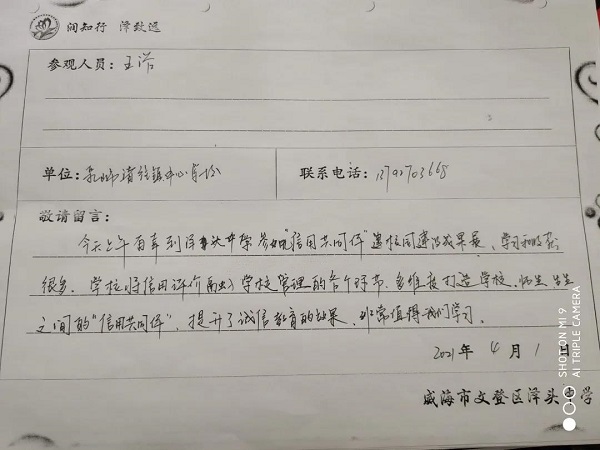 润知行 泽致远
参观人员：王浩
单位：乳山市诸往镇中心学校
联系电话：13792703668
敬请留言：
今天上午有幸到泽头中学参观"信用共同体"进校园建设成果展，学习和收获
很多。学校将信用评价融入学校管理的各个环节，多维度打造学校、师生、生生
之间的"信用共同体"，提升了诚信教育的效果，非常值得我们学习。
2021年 4月 1日
威海市文登区泽头中学
SHOT ON MI 9
AI TRIPLE CAMERA